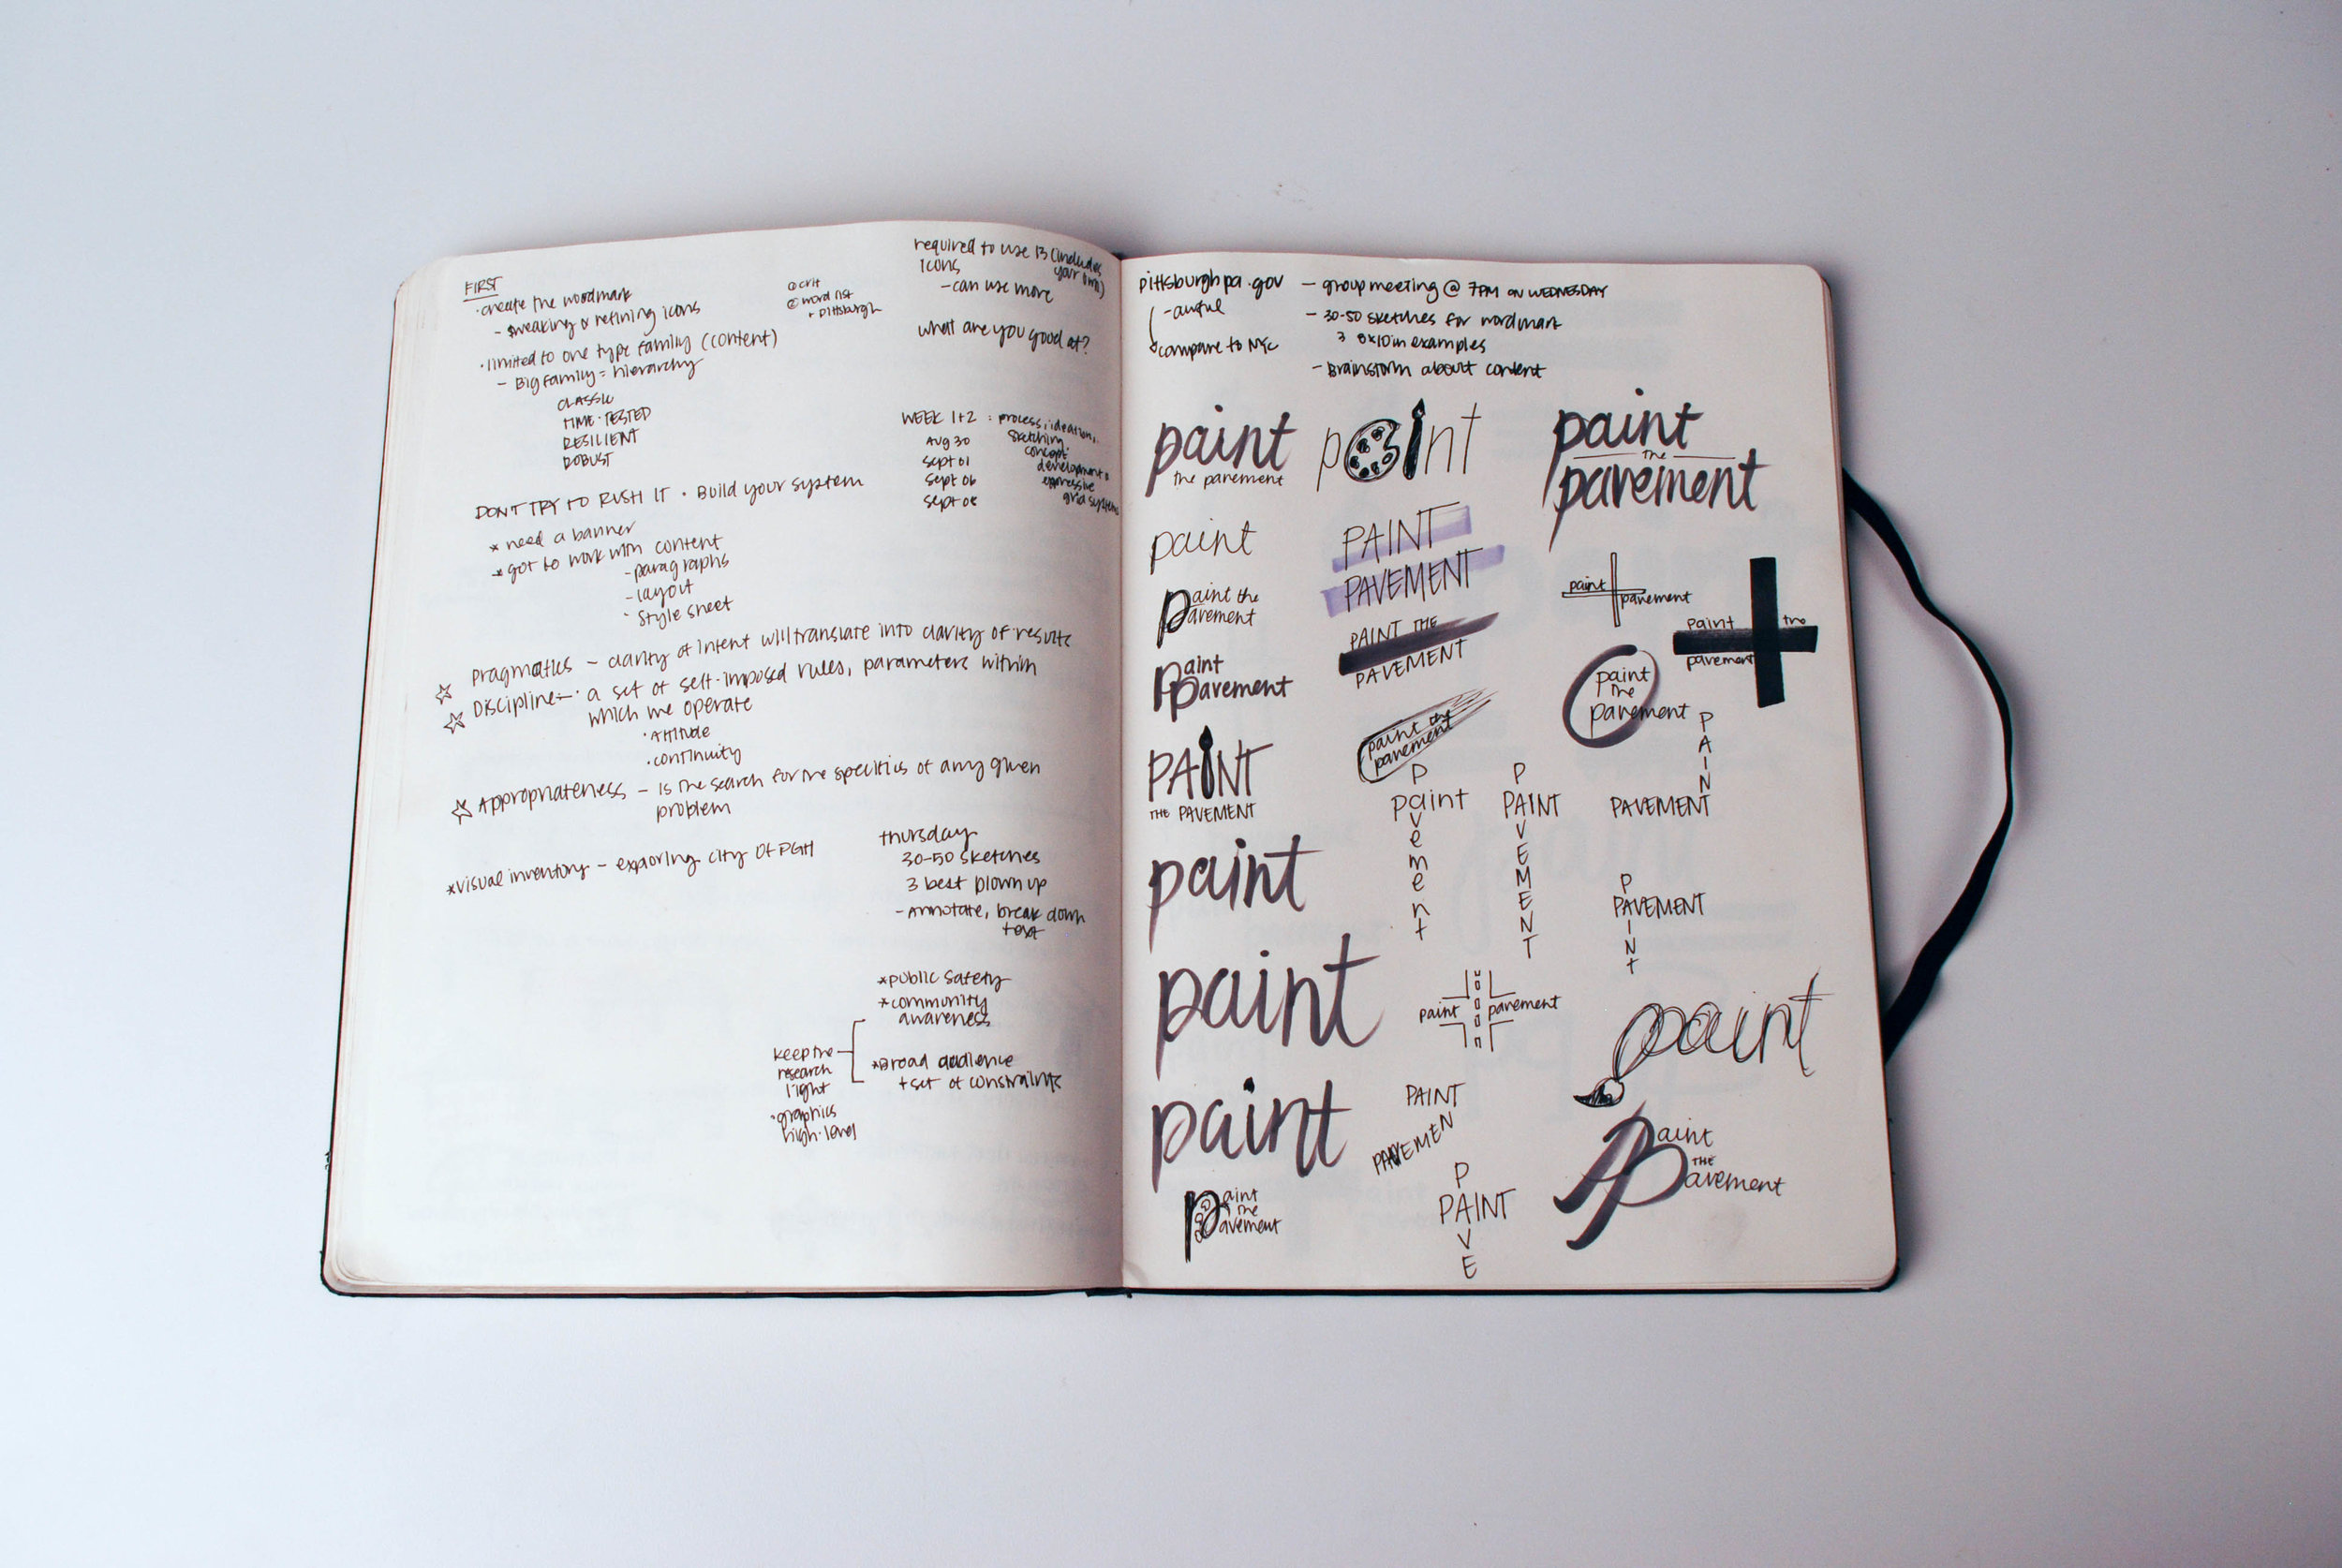 FIRST
·create the wordmark
- tweaking & refining icons
·limited to one type family (content)
- Big family = hierarchy
CLASSIC
TIME·TESTED
RESILIENT
ROBUST
① crit
② word list
+ pittsburgh
required to use 13 (includes
icons your own)
- can use more
what are you good at?
WEEK 1+2 : process, ideation,
Aug 30 sketching
Sept 01 concept
Sept 06 development
Sept 08 expressive
grid systems
DON'T TRY TO RUSH IT · Build your system
* need a banner
* got to work with content
- paragraphs
- layout
· Style sheet
☆ Pragmatics - clarity of intent will translate into clarity of results
☆ Discipline - · a set of self-imposed rules, parameters within
which we operate
· Attitude
· continuity
☆ Appropriateness - is the search for the specifics of any given
problem
*visual inventory - exploring city of PGH
thursday
30-50 sketches
3 best blown up
- Annotate, break down
text
*public safety
*community
awareness
*Broad audience
+ set of constraints
keep the
research
light
·graphics
high-level
pittsburghpa.gov
- awful
compare to NYC
- group meeting @ 7PM ON WEDNESDAY
- 30-50 sketches for wordmark
3 8x10in examples
- Brainstorm about content
paint
the pavement
paint
paint
the
pavement
paint
PAINT
PAVEMENT
paint pavement
paint the
pavement
Paint the
Pavement
PAINT THE
PAVEMENT
paint
the
pavement
Paint
Pavement
paint the
pavement
PAINT
THE PAVEMENT
P
paint
v
e
m
e
n
t
P
PAINT
V
E
M
E
N
T
P
A
I
N
PAVEMENT
paint
P
PAVEMENT
I
N
T
paint
paint pavement
paint
paint
PAINT
PAVEMEN
Paint
THE
Pavement
Paint
the
Pavement
P
PAINT
V
E